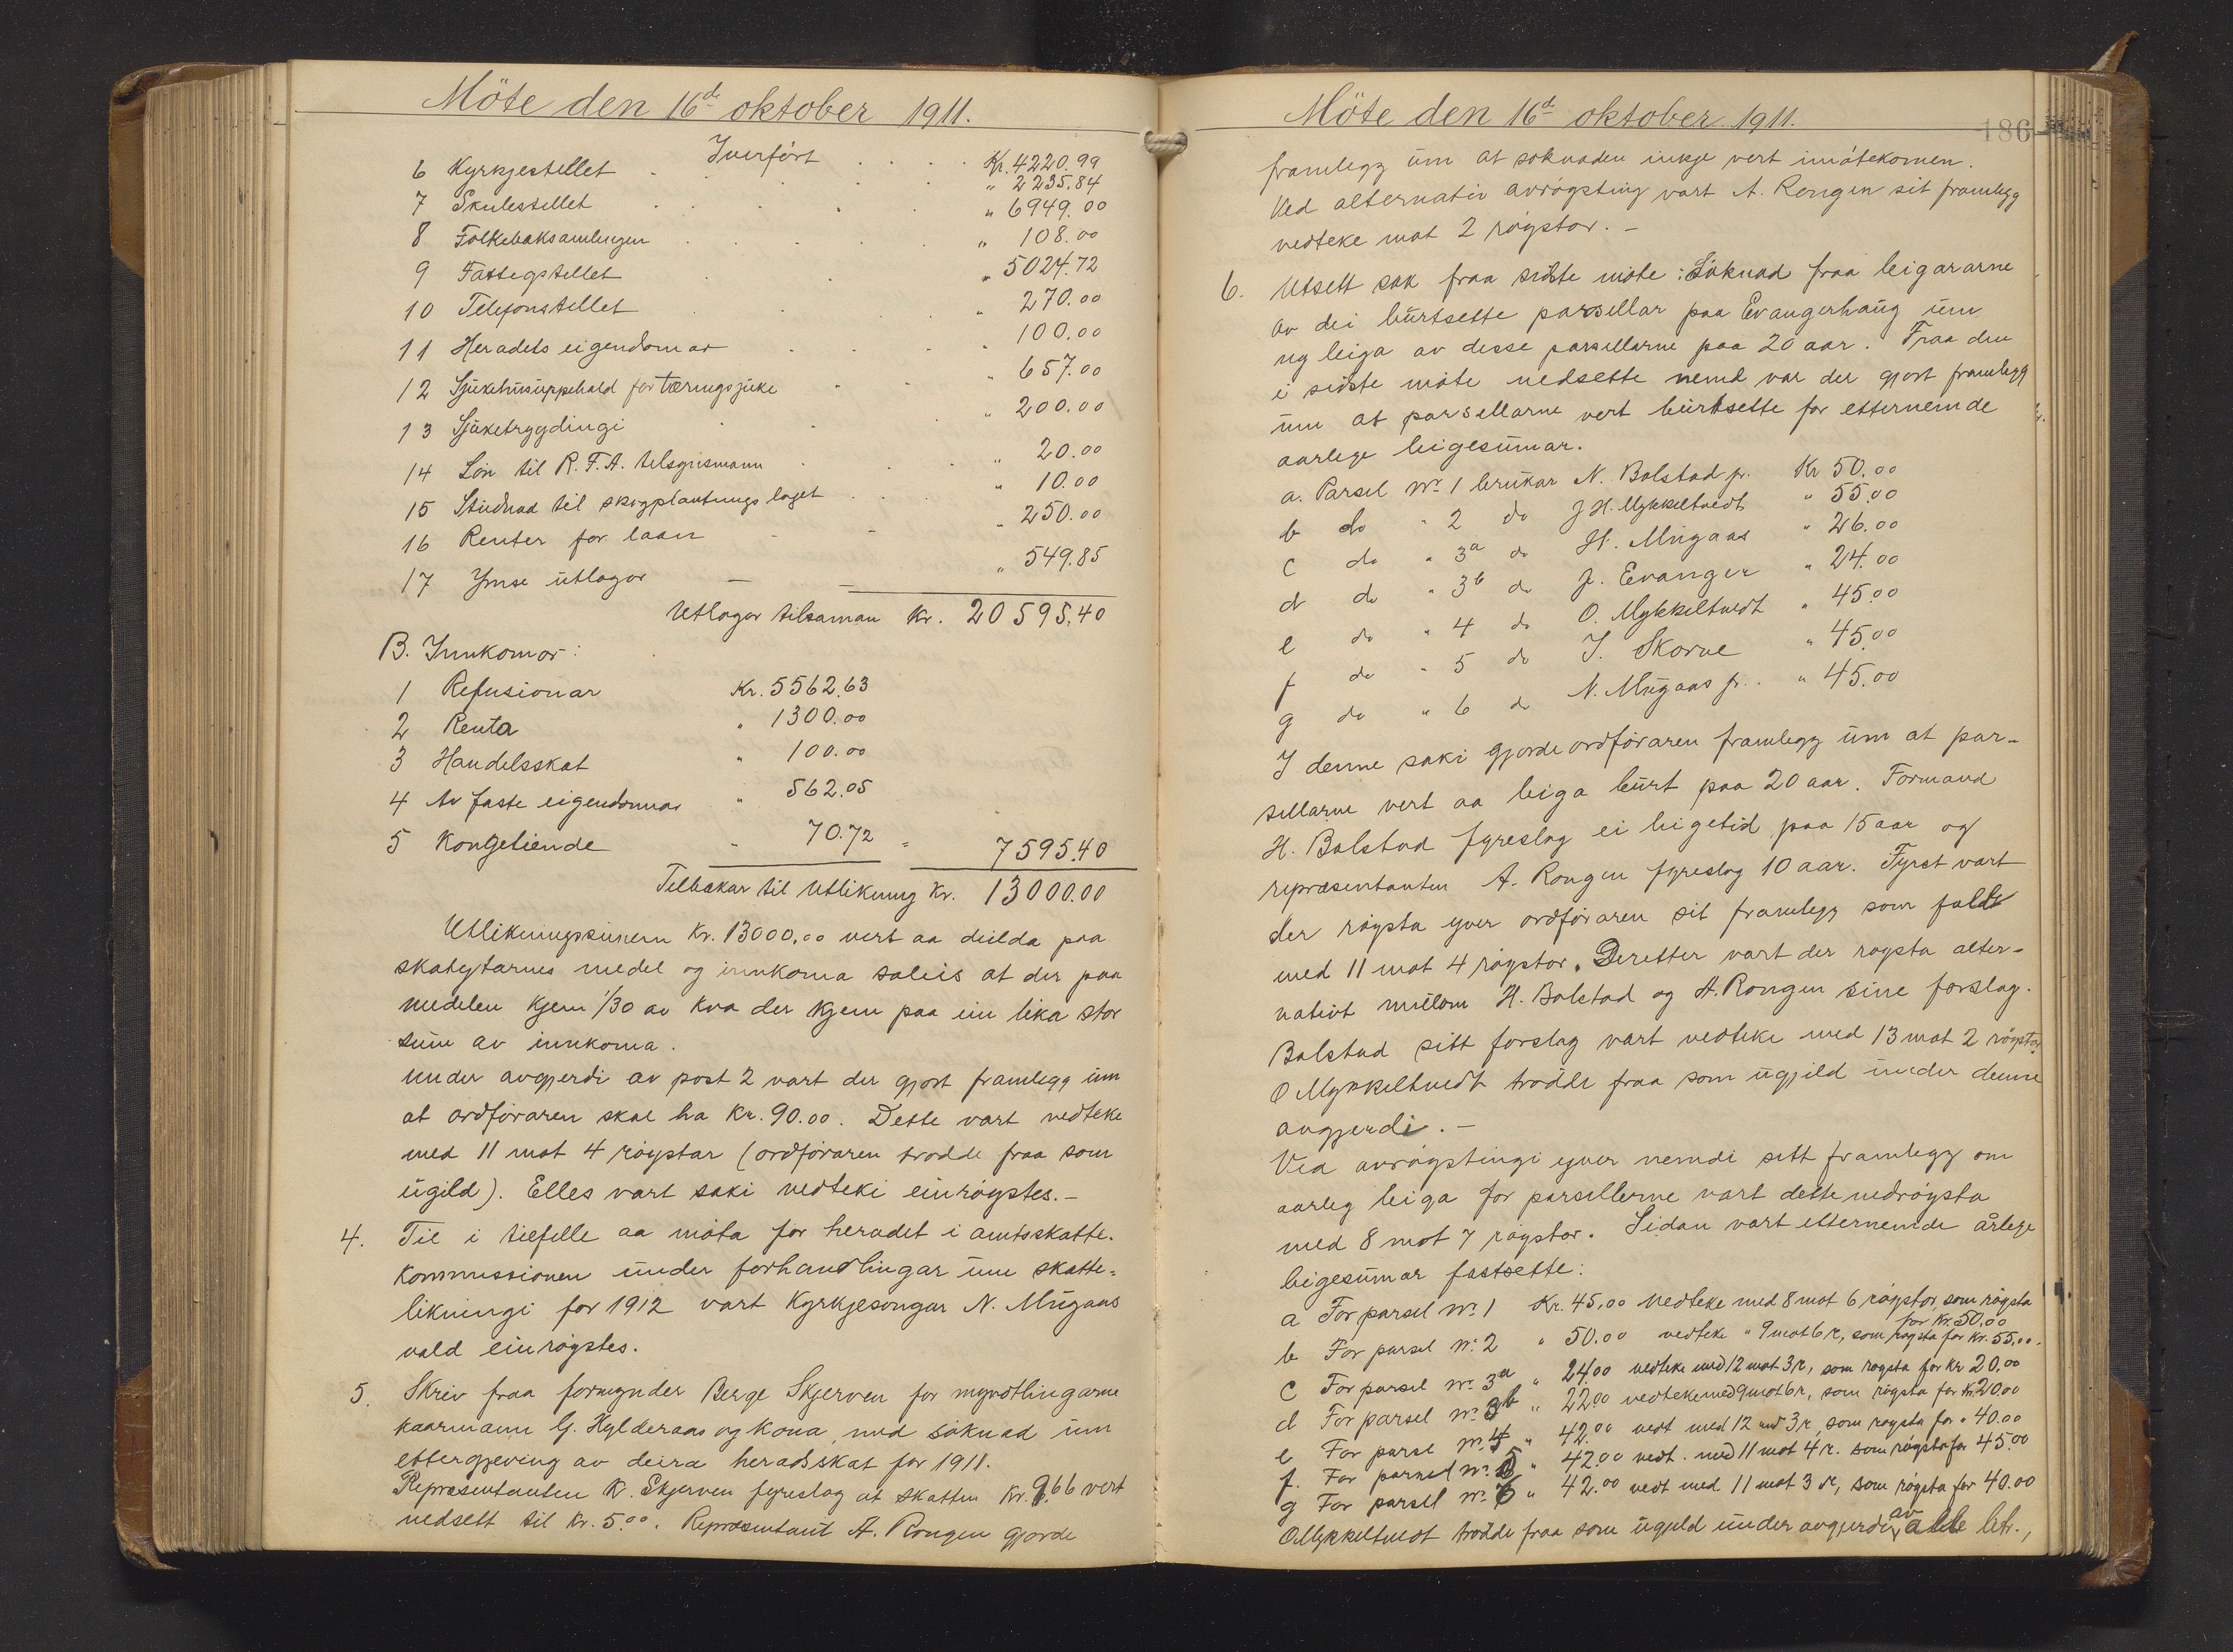 Möte den 16de oktober 1911.
Iverfört . . . . Kr. 4220.99
6 Kyrkjestellet . . . . " 2235.84
7 Skulestellet . . . . " 6949.00
8 Folkeboksamlingen . . . . " 108.00
9 Fattigstellet . . . " 5024.72
10 Telefonstellet . . . " 270.00
11 Heradets eigendomar . . . " 100.00
12 Sjukehusuppehald for tæringssjuke . . " 657.00
13 Sjuketrygdingi . . . " 200.00
14 Lön til R.F.A. tilsynsmann . . . " 20.00
15 Studnad til skogplantnings laget . . . " 10.00
16 Renter for laan - - " 250.00
17 Ymse utlogor — — " 549.85
Utlogor tilsaman Kr. 20595.40
B. Innkomor:
1 Refusionar Kr. 5562.63
2 Renta " 1300.00
3 Handelsskat " 100.00
4 Av faste eigendomar " 562.05
5 Kongetiende " 70.72 = 7595.40
Tilbakar til Utlikning Kr. 13000.00
Utlikningssumen Kr. 13000,00 vert aa deilda paa
skatytarnes medel og innkoma soleis at der paa
medelen kjem 1/30 av kva der kjem paa ein lika stor
sum av innkoma.
Under avgjerdi av post 2 vart der gjort framlegg um
at ordföraren skal ha Kr. 90.00. Dette vart vedteke
med 11 mot 4 röystar (ordföraren trodde fraa som
ugild). Elles vart saki vedteki einröystes.-
4. Til i tilfelle aa möta for heradet i amtsskatte-
kommissionen under forhandlingar um skatte-
likningi for 1912 vart Kyrkjesongar N. Mugaas
vald einröystes.
5. Skriv fraa formynder Berge Skjerven for myndlingarne
kaarmann G. Hylderaas og kona, med söknad um
ettergjeving av deira heradsskat for 1911.
Repræsentanten K. Skjerven fyreslog at skatten Kr. 9.66 vert
nedsett til Kr. 5.00. Repræsentant A. Rongen gjorde
Möte den 16d oktober 1911.
186
framlegg um at söknaden inkje vert imötekomen.
Ved alternativ avröysting vart A. Rongen sit framlegg
vedteke mot 2 röystor. -
6. Utsett sak fraa sidste möte: Söknad fraa leigararne
av dei burtsette parsellar paa Evangerhaug um
ny leiga av desse parsellarne paa 20 aar. Fraa den
i sidste möte nedsette nemd var der gjort framlegg
um at parsellarne vert burtsette for etternemde
aarlege leigesumar.
a. Parsel No 1 brukar N. Bolstad jr. Kr 50.00
b do " 2 do J H. Mykkeltvedt " 55.00
c do " 3a do H. Mugaas " 26.00
d do " 3b do J. Evanger " 24.00
e do " 4 do O. Mykkeltvedt " 45.00
f do " 5 do I. Skorve " 45.00
g do " 6 do N. Mugaas jr. . " 45.00
I denne saki gjorde ordföraren framlegg um at par-
sellarne vert aa leiga burt paa 20 aar. Formand
H. Bolstad fyreslog ei leigetid paa 15 aar og
repræsentanten A. Rongen fyreslog 10 aar. Fyrst vart
der röysta yver ordföraren sit framlegg som fall
med 11 mot 4 röystor. Deretter vart der röysta alter-
nativt millom H. Bolstad og A. Rongen sine forslag.
Bolstad sitt forslag vart vedteke med 13 mot 2 röystor
O Mykkeltvedt trodde fraa som ugjild under denne
avgjerdi. -
Ved avröystingi yver nemdi sitt framlegg om
aarleg leiga for parsellerne vart dette nedröysta
med 8 mot 7 röystor. Sidan vart etternemde årlege
leigesumar fastsette:
a For parsel No 1 Kr. 45,00 vedteke med 8 mot 6 röystor som röysta
for Kr. 50.00
b For parsel No 2 " 50.00 vedteke " 9 mot 6 r, som röysta for Kr. 55,00.
c For parsel No 3a " 24.00 vedteke med 12 mot 3 r, som röysta for Kr 20.00
d For parsel No 3b " 22.00 vedteke med 9 mot 6 r, som röysta for Kr. 20.00
e For parsel No 4 " 42.00 vedt med 12 mot 3 r, som röysta for " 40.00
f. For parsel No 5 " 42.00 vedt. med 11 mot 4 r. som röysta for 45.00
g For parsel No 6 " 42.00 vedt med 11 mot 3 r, som röysta for 40.00
O Mykkeltvedt trodde fraa som ugjild under avgjerdi av alle litr.,